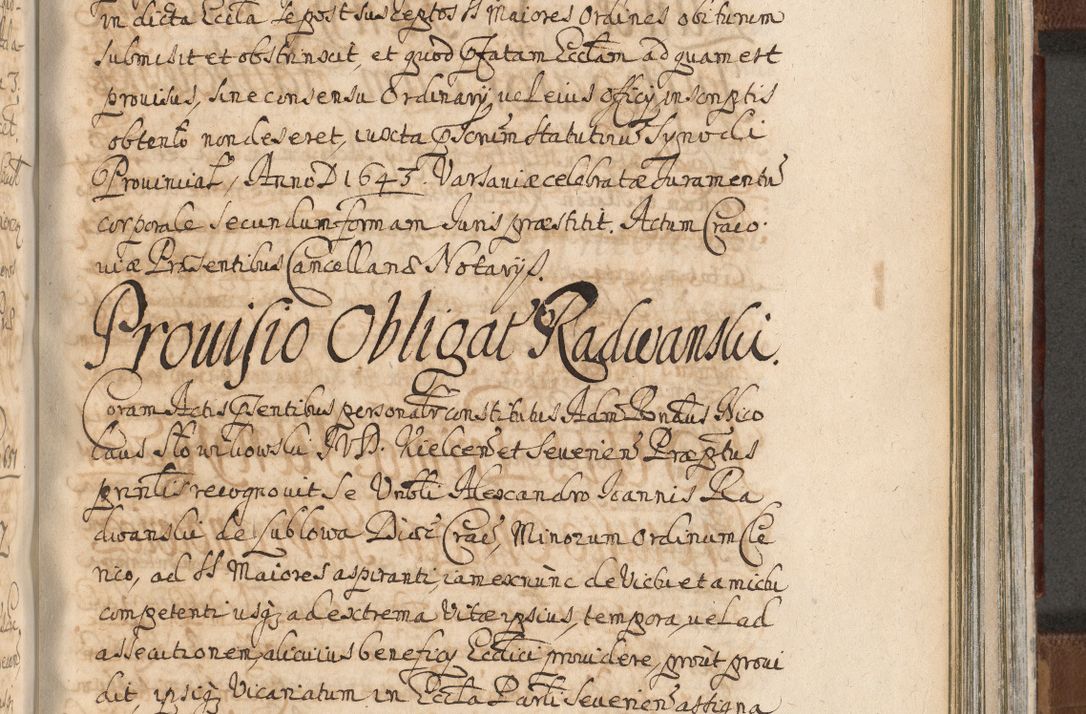 in dicta Eccla se post susceptos SS Maiores Ordines obiturum
submisit et obstrinxit, et quod Pfatam Ecclam ad quam est
prouisus, sine consensu Ordinarij uel eius Officij in scriptis
obtento non deseret, iuxta Pscrum statutum Synodi
Prouincial, Anno D 1643. Varsauiæ celebratæ Juramentu
corporale secundum formam Juris præstitit. Actum Craco
uiæ Præsentibus Cancellariæ Notarijs.
Prouisio Obligat Radwanski.
Coram Actis Psentibus personalr constitutus Adm Rondus Nico
laus Słowikowski JVD. Kielcen et Seuerien Præptus
prntlis recognouit se Vnobli Alexandro Joannis Ra
dwanski de Sublowa Diæc Crac, Minorum Ordinum Cle
rico, ad SS Maiores aspiranti, iam ex nunc de Victu et amictu
competenti usq; ad extrema Vitæ ipsius, tempora, uel ad
assecutionem, alicuius beneficij Ecclici prouidere, prout proui
dit, ipsiq; Vicariatum in Eccla Parli Seuerien assigna